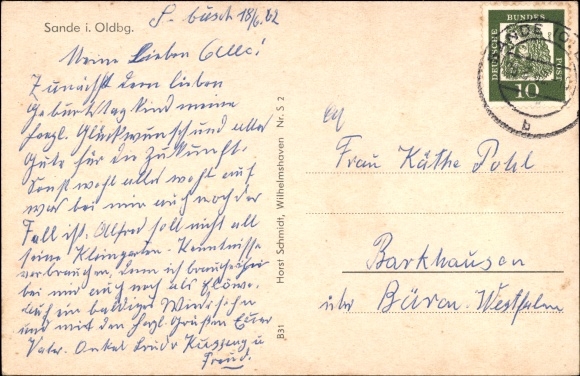 Sande i. Oldbg.
S-busch 18/6.62
Meine Lieben Alle!
Zunächst dem lieben
Geburtstagskind meine
herzl. Glückwunsch und alles
Gute für die Zukunft.
Sonst wohl alles wohl auf
was bei mir auch noch der
Fall ist. Alfred soll nicht all
seine Kleingarten-Kenntnisse
verbrauchen, denn ich brauche ihn
bei mir auch noch als
Auf ein baldiges Wiedersehn
und mit den herzl. Grüßen Euer
Vater. Onkel Bruder u
Freund.
Horst Schmidt, Wilhelmshaven Nr. S 2
B31
DEUTSCHE BUNDESPOST
10
b
Frau Käthe Pohl
Barkhausen
über Büren-Westfalen